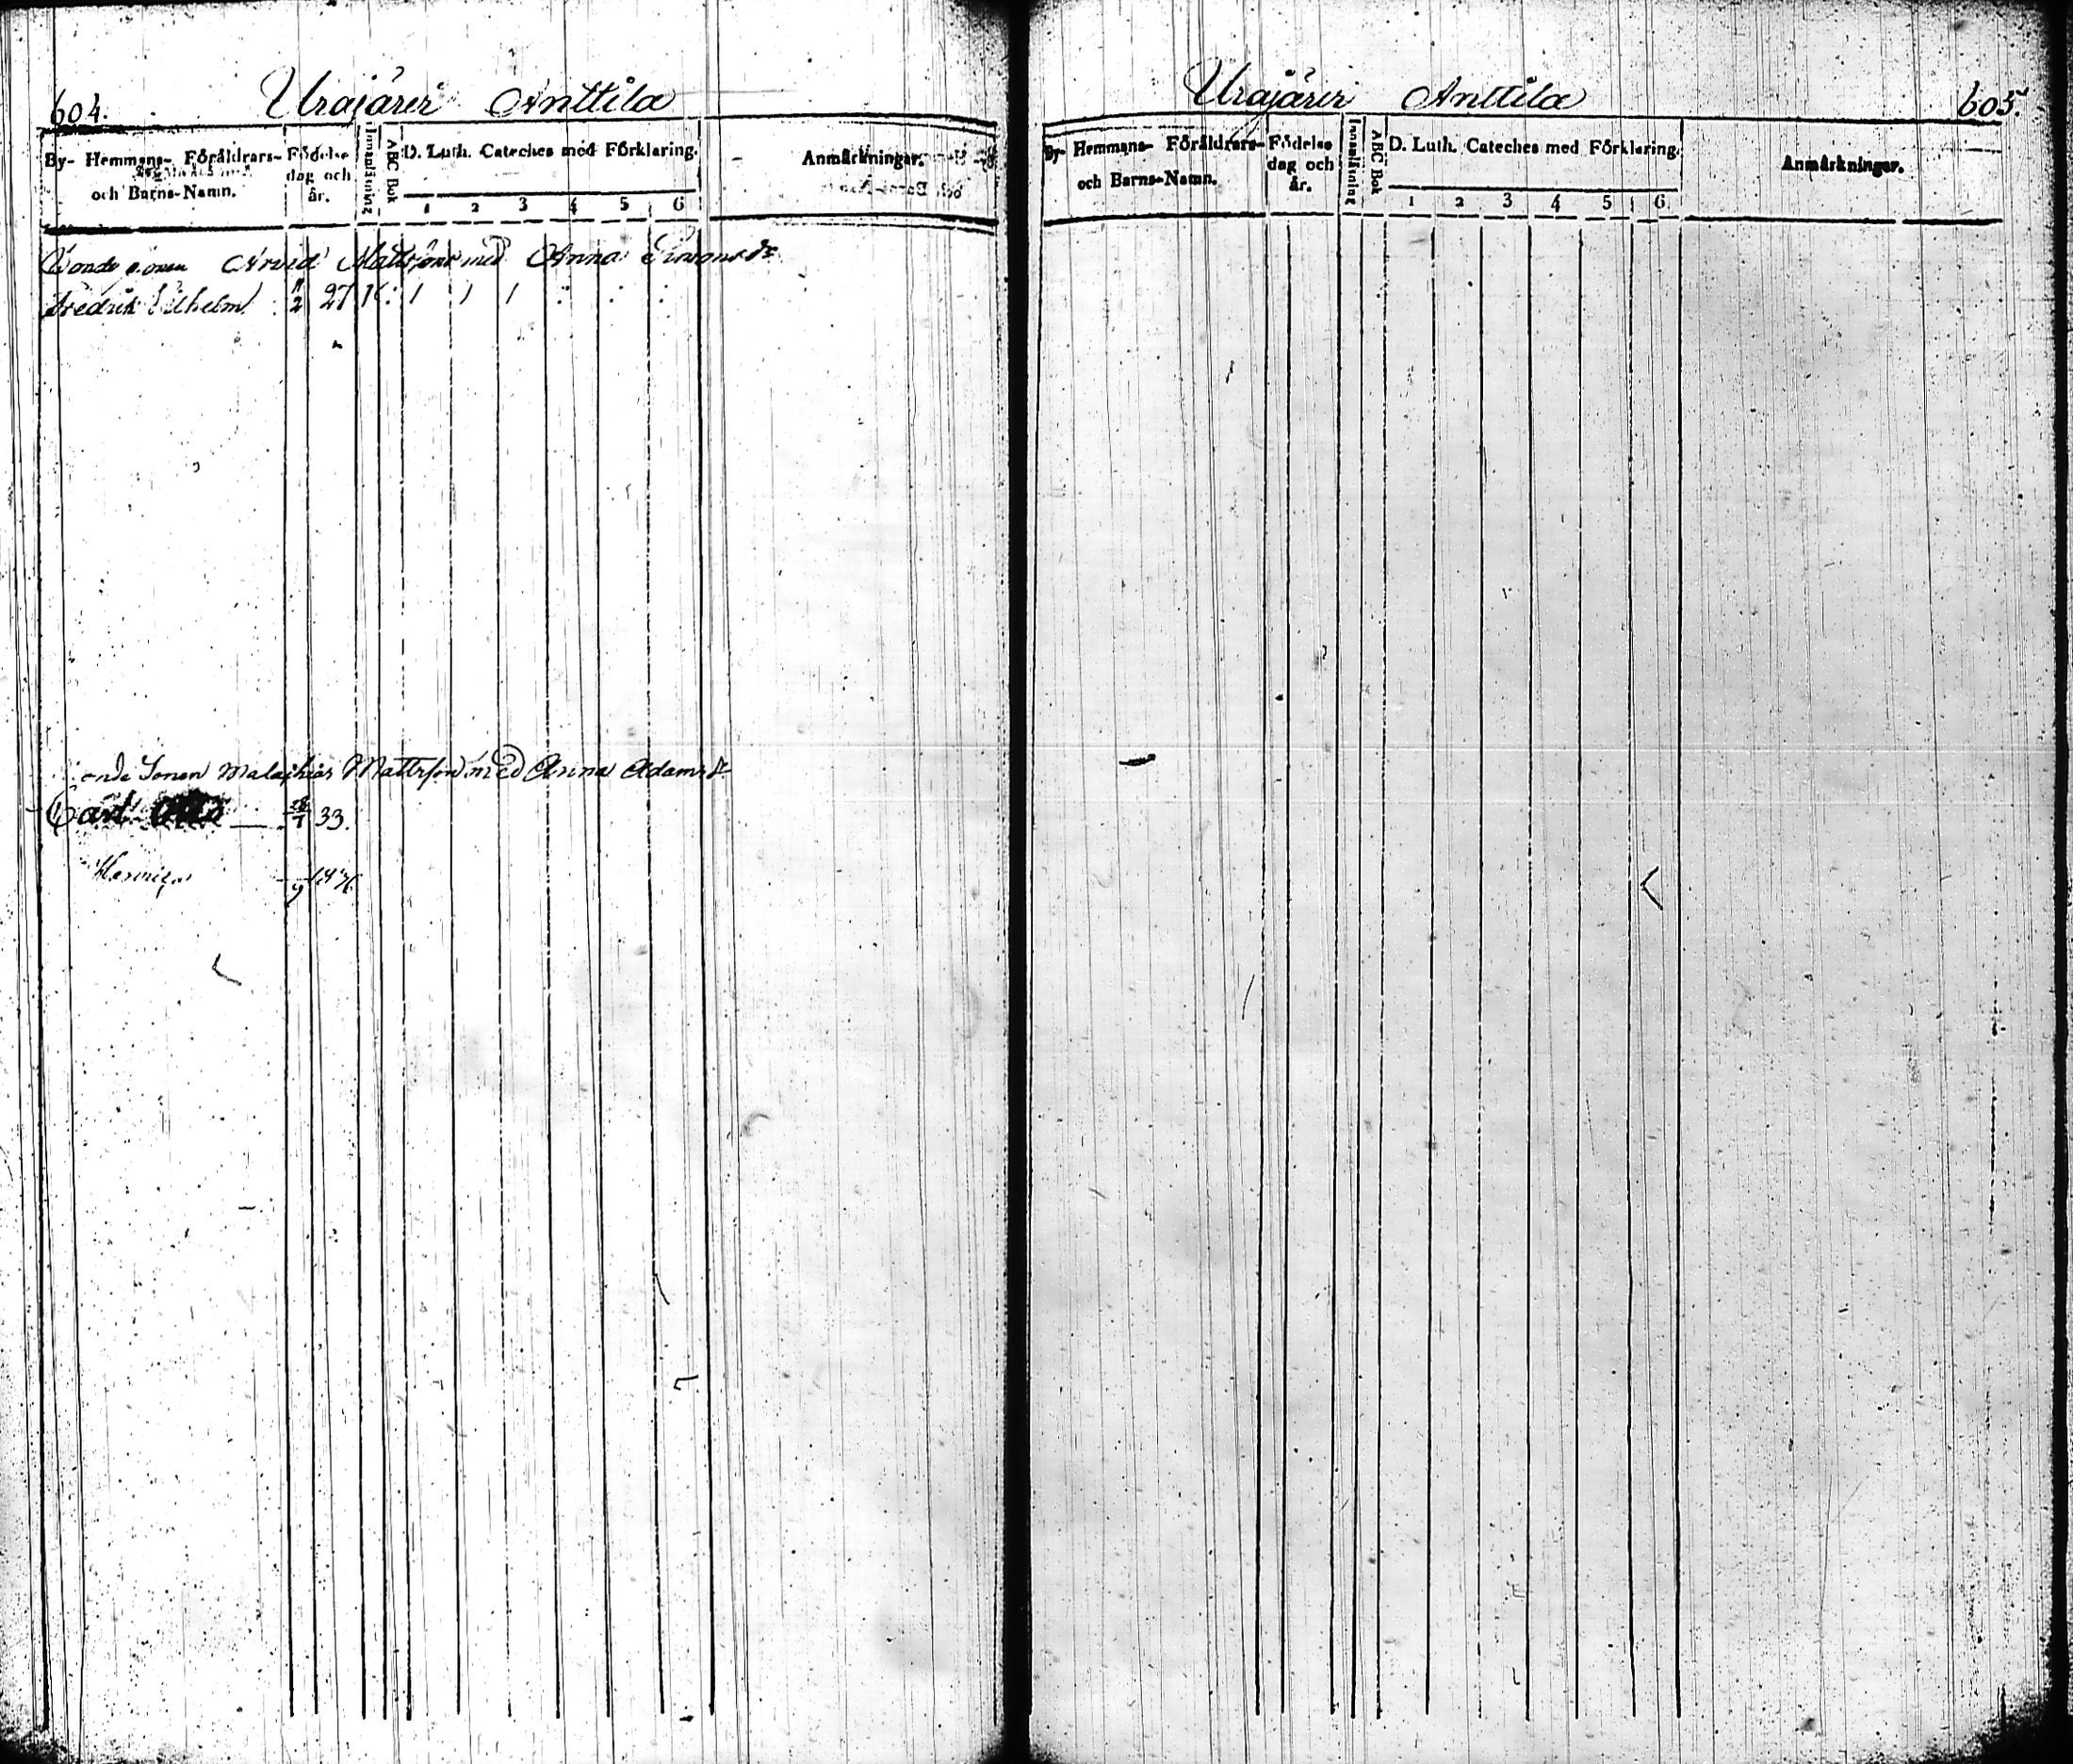 604.
Urajärvi Anttila
By- Hemmans- Föräldrars- och Barns-Namn.
Födelse dag och år.
Innanläsning
ABC Bok
D. Luth. Cateches med Förklaring.
1 2 3 4 5 6
Anmärkningar.
Bonde sonen Arvid Mattsson med Anna Simonsdr
Fredrik Vilhelm 11/2 27
onde Sonen Malachias Mattsson med Anna Adamsdr
Carl Otto 33.
Henrica
Urajärvi Anttila
605.
By- Hemmans- Föräldrars- och Barns-Namn.
Födelse dag och år.
Innanläsning
ABC Bok
D. Luth. Cateches med Förklaring.
1 2 3 4 5 6
Anmärkningar.